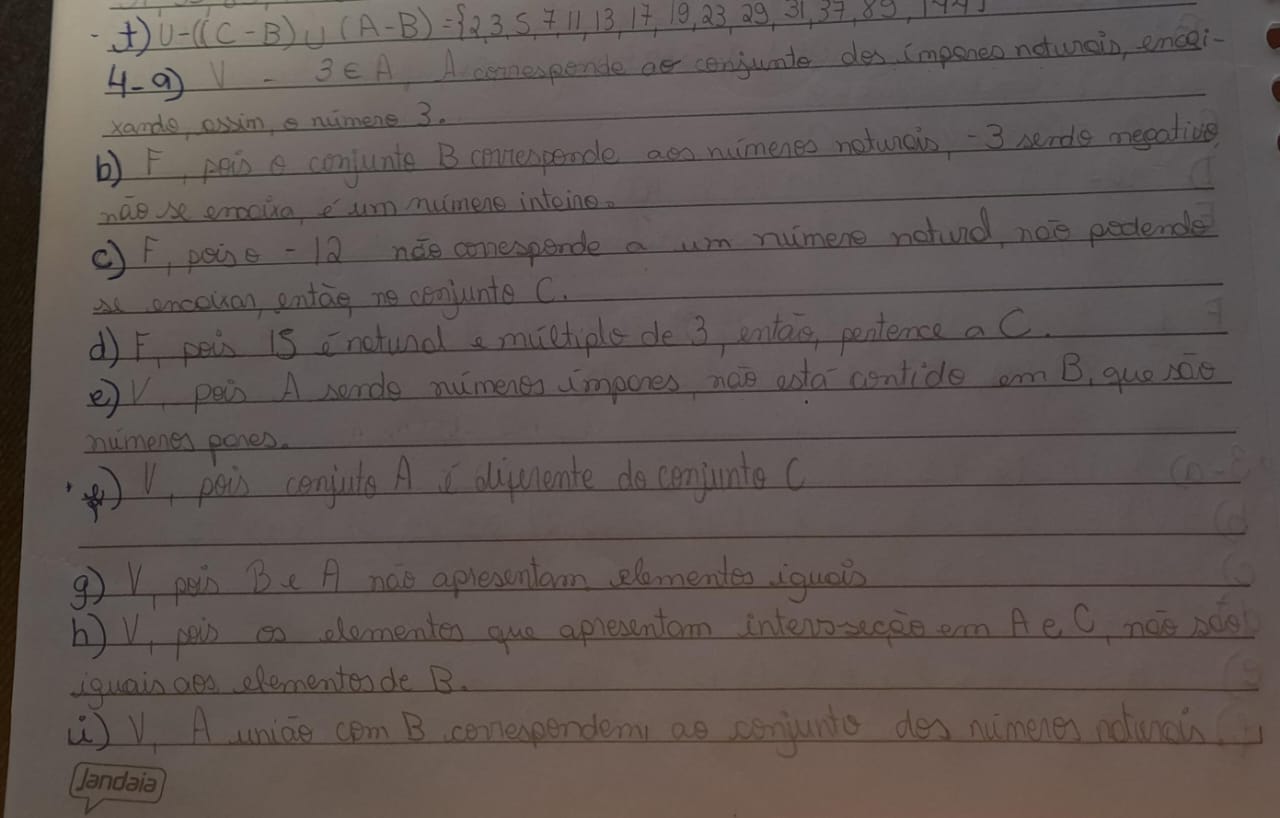 t) U-((C-B)∪(A-B)={2,3,5,7,11,13,17,19,23,29,31,37,89,144}
4-a) V - 3 ∈ A, A corresponde ao conjunto dos ímpares naturais, encai-
xando, assim, o número 3.
b) F, pois o conjunto B corresponde aos números naturais, -3 sendo negativo
não se encaixa, é um número inteiro.
c) F, pois o -12 não corresponde a um número natural, não podendo
se encaixar, então, no conjunto C.
d) F, pois 15 é natural e múltiplo de 3, então, pertence a C.
e) V, pois A sendo números ímpares, não está contido em B, que são
números pares.
f) V, pois conjuto A é diferente do conjunto C
g) V, pois B e A não apresentam elementos iguais
h) V, pois os elementos que apresentam inters-seção em A e C, não são
iguais aos elementos de B.
i) V, A união com B correspondem ao conjunto dos números naturais
Jandaia